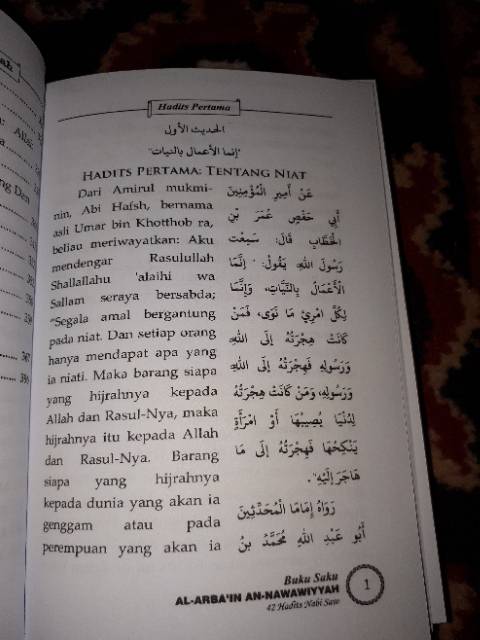 Hadits Pertama
الحديث الأول
"إنما الأعمال بالنيات"
HADITS PERTAMA: TENTANG NIAT
Dari Amirul mukmi-
nin, Abi Hafsh, bernama
asli Umar bin Khotthob ra,
beliau meriwayatkan: Aku
mendengar Rasulullah
Shallallahu 'alaihi wa
Sallam seraya bersabda;
"Segala amal bergantung
pada niat. Dan setiap orang
hanya mendapat apa yang
ia niati. Maka barang siapa
yang hijrahnya kepada
Allah dan Rasul-Nya, maka
hijrahnya itu kepada Allah
dan Rasul-Nya. Barang
siapa yang hijrahnya
kepada dunia yang akan ia
genggam atau pada
perempuan yang akan ia
عَنْ أَمِيرِ الْمُؤْمِنِينَ
أَبِي حَفْصٍ عُمَرَ بْنِ
الْخَطَّابِ قَالَ: سَمِعْتُ
رَسُولَ اللهِ يَقُولُ: "إِنَّمَا
الْأَعْمَالُ بِالنِّيَّاتِ، وَإِنَّمَا
لِكُلِّ امْرِئٍ مَا نَوَى، فَمَنْ
كَانَتْ هِجْرَتُهُ إِلَى اللهِ
وَرَسُولِهِ فَهِجْرَتُهُ إِلَى اللهِ
وَرَسُولِهِ، وَمَنْ كَانَتْ هِجْرَتُهُ
لِدُنْيَا يُصِيبُهَا أَوْ امْرَأَةٍ
يَنْكِحُهَا فَهِجْرَتُهُ إِلَى مَا
هَاجَرَ إِلَيْهِ".
رَوَاهُ إِمَامَا الْمُحَدِّثِينَ
أَبُو عَبْدِ اللهِ مُحَمَّدُ بْنُ
Buku Saku
AL-ARBA'IN AN-NAWAWIYYAH
42 Hadits Nabi Saw
1